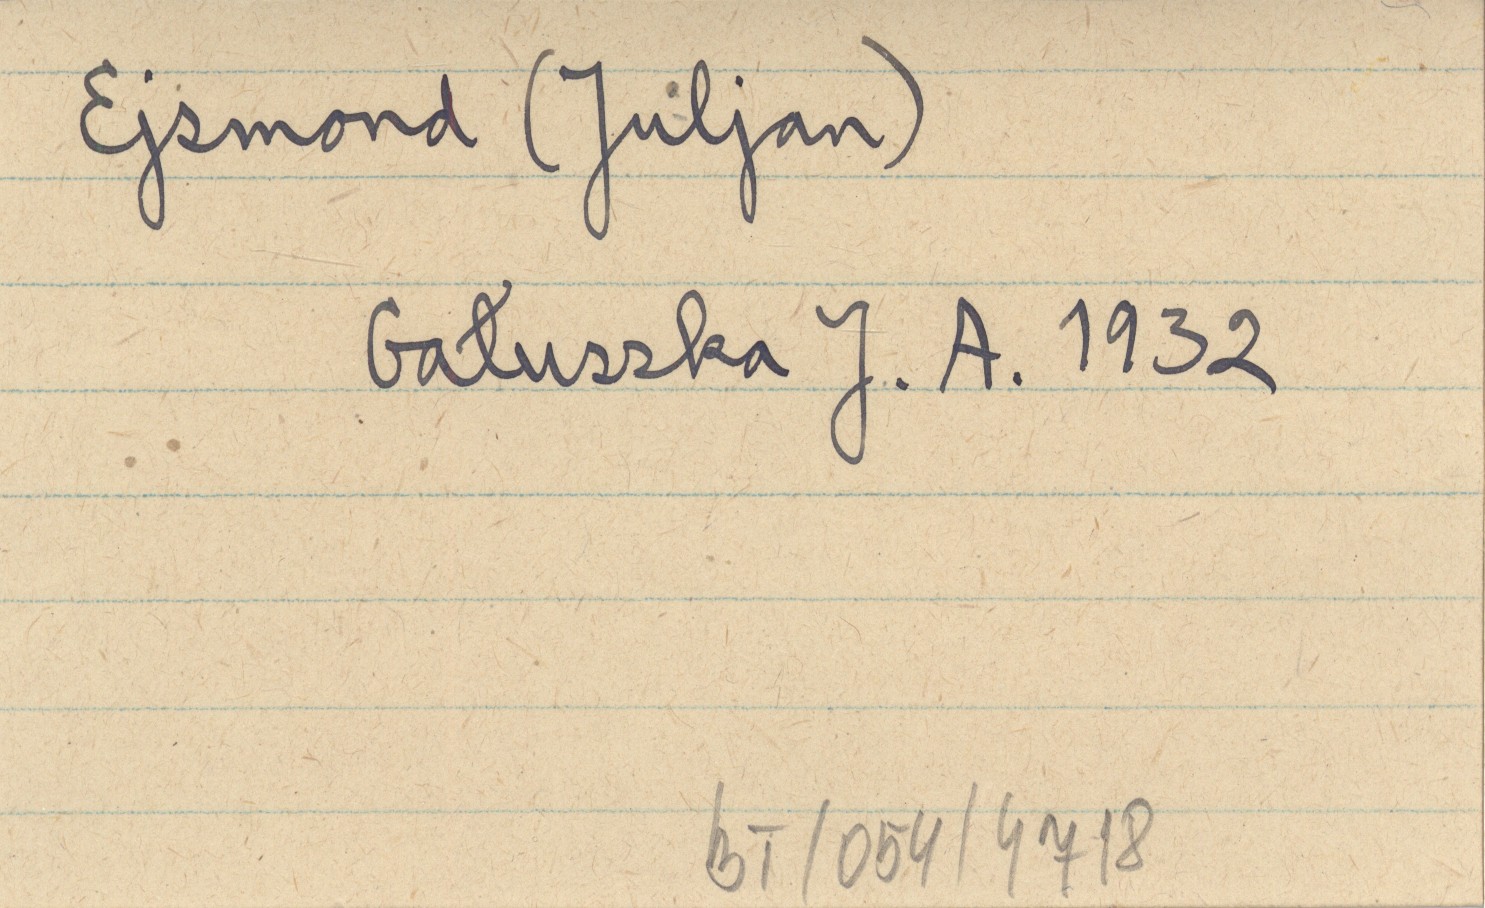 Ejsmond (Juljan)
Gałuszka J. A. 1932
BT/054/4718